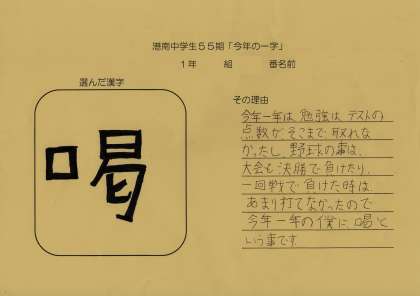 港南中学生55期「今年の一字」
1年 組 番名前
選んだ漢字
喝
その理由
今年一年は、勉強は、テストの
点数がそこまで取れな
かったし、野球の事は、
大会も決勝で負けたり、
一回戦で負けた時は
あまり打てなかったので
今年一年の僕に「喝」と
いう事です